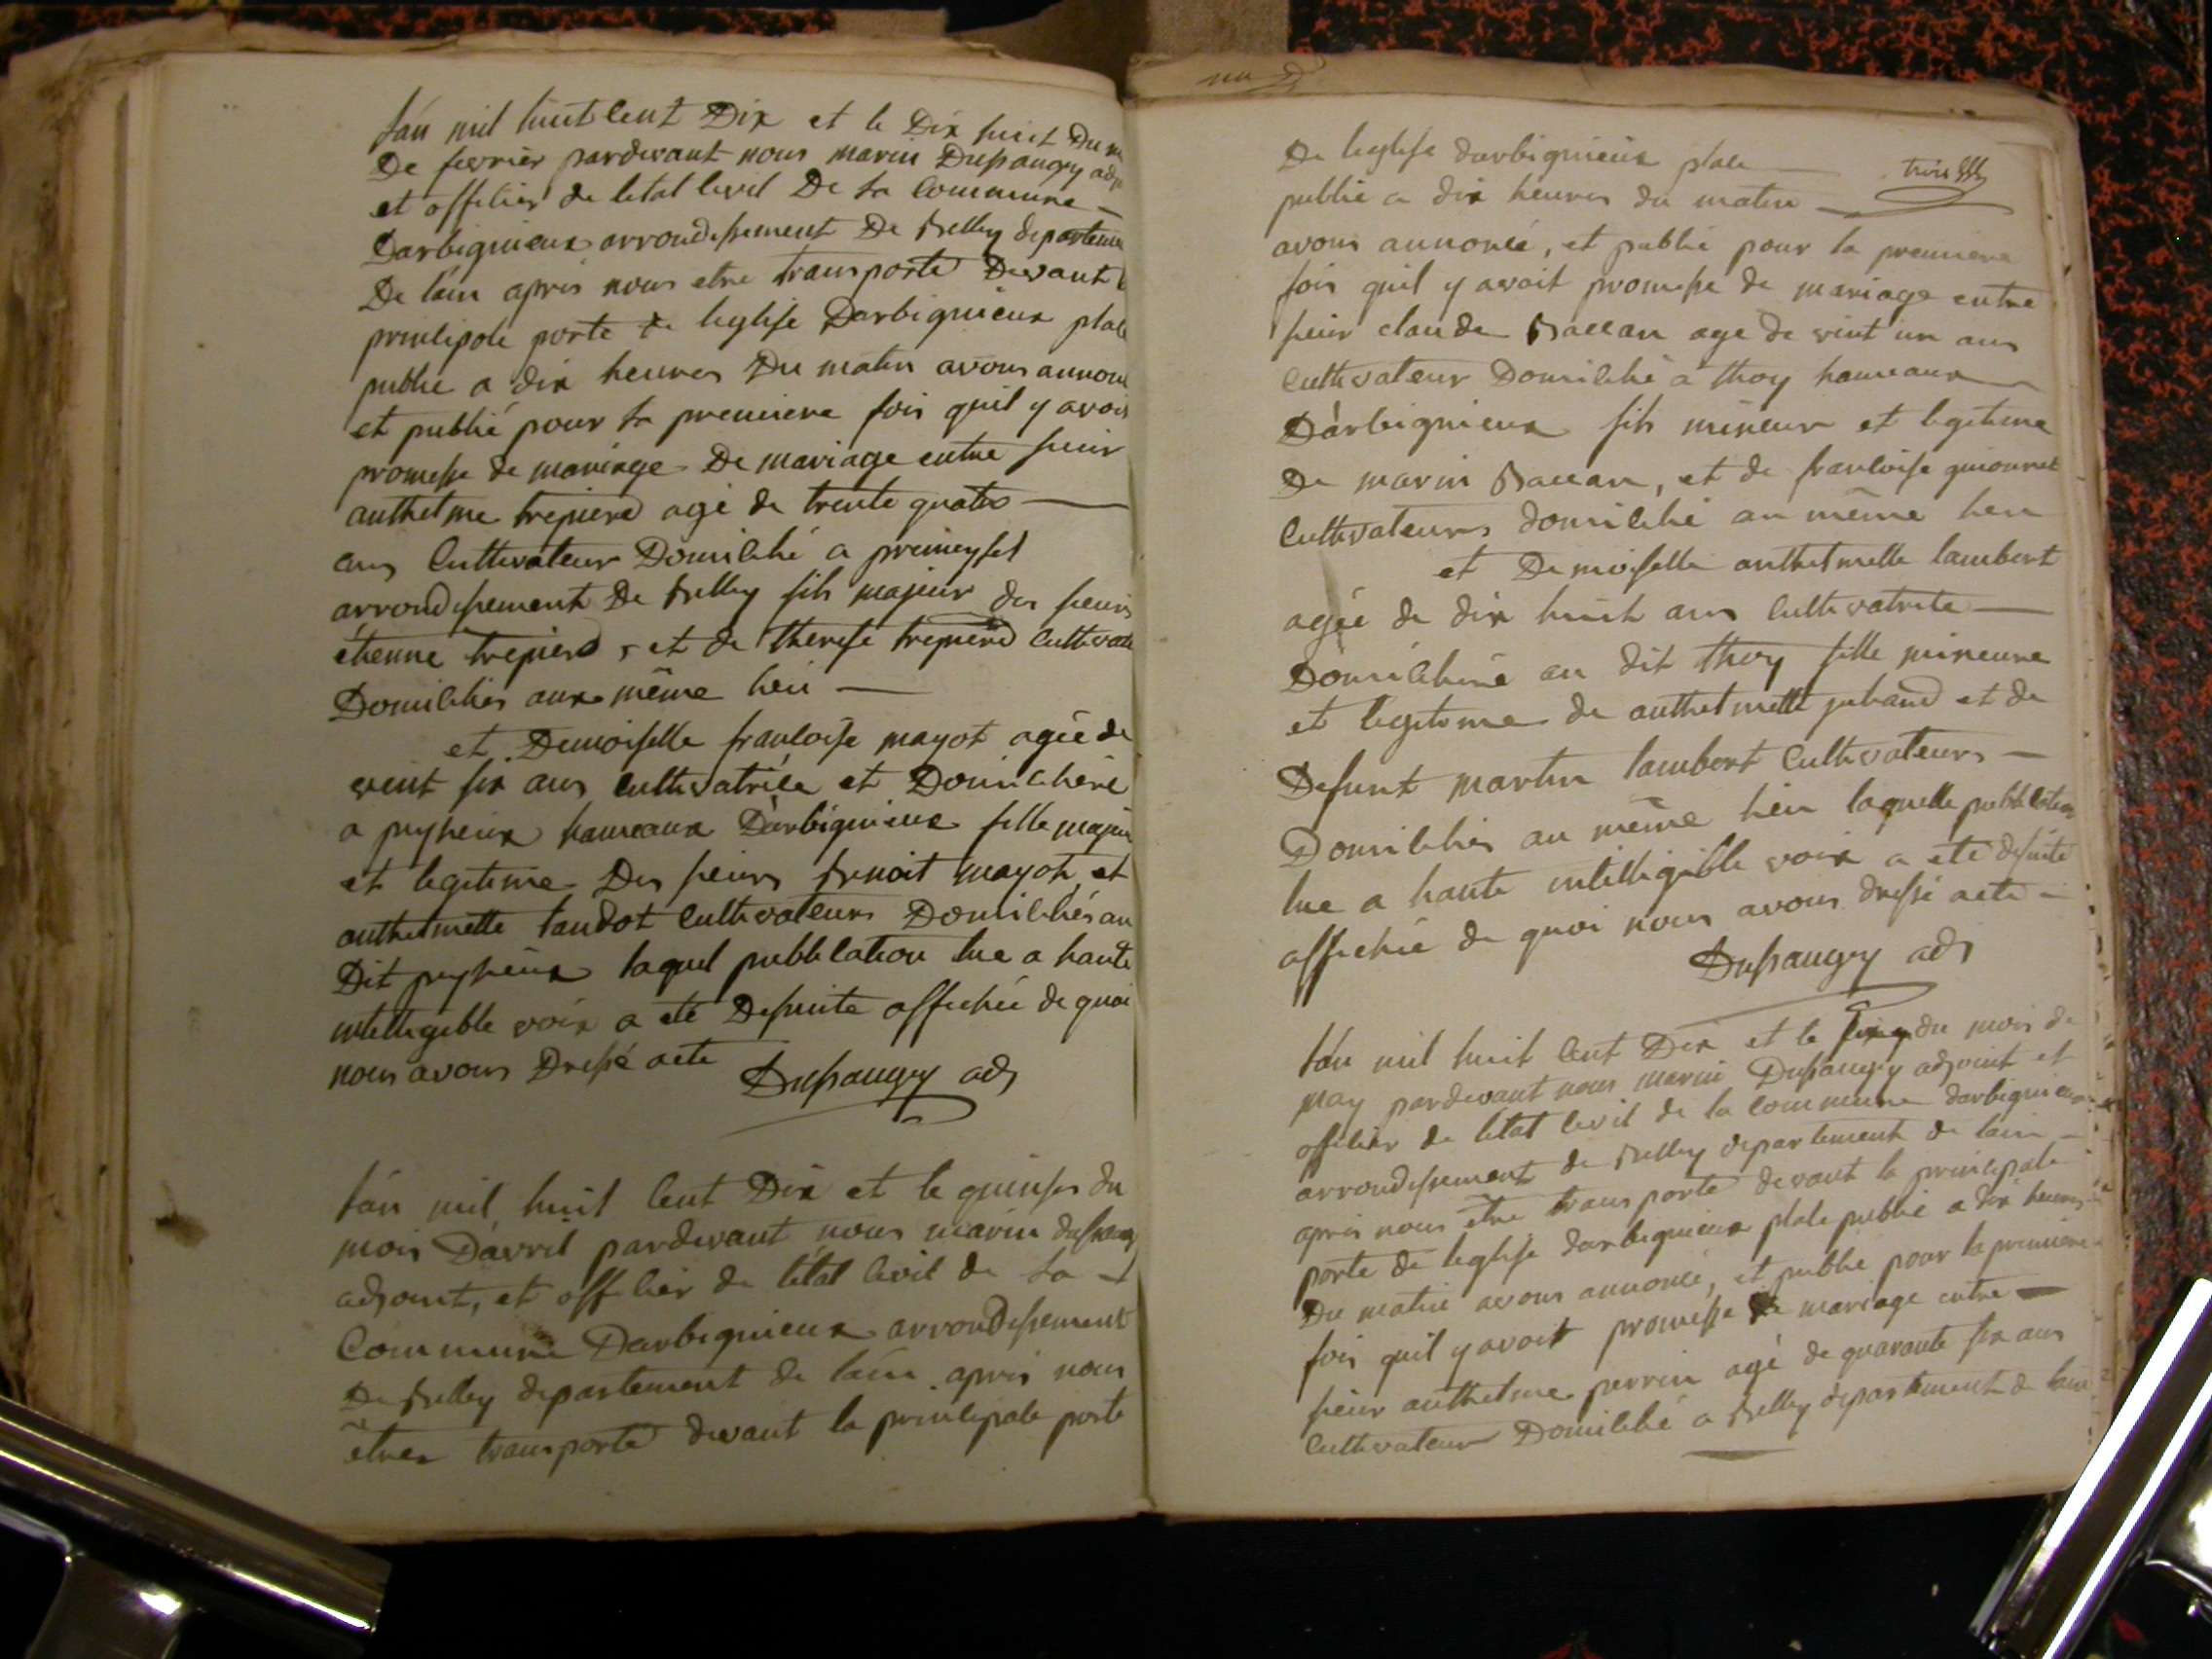 lan mil huit cent Dix et le Dix huit Du m
De fevrier pardevant nous marin Dussaugey adj
et officier de letat civil De la Commune
Darbignieux arrondissement De belley departeme
De lain apres nous etre transporté Devant l
principale porte de leglise Darbignieux place
public a dix heures Du matin avons annonc
et publié pour la premiere fois quil y avoit
promesse de mariage De mariage entre sieur
anthelme trepier agé de trente quatre
ans Cultivateur Domicilié a premeyzel
arrondissement De belley fils majeur des sieurs
étienne trepier, et de therese trepier Cultivate
Domiciliés aux même lieu
et Demoiselle francoise mayot agée de
vint six ans cultivatrice et Domicilière
a peyzieux hameaux Darbignieux fille majeu
et legitime Des sieurs benoit mayot, et
anthelmette landot Cultivateurs Domiciliés au
Dit peyzieux laquel publication lue a haute
intelligible voix a eté Desuite affichée de quoi
nous avons Dressé acte
Dussaugey adj
lan mil huit Cent Dix et le quinses du
mois Davril pardevant nous marin dussaug
adjoint, et officier de létat Civil de la
Commune Darbignieux arrondissement
De belley departement de lain apres nous
êtres transporté devant la principale porte
De leglise darbignieux place
trois
public a dix heures du matin
avons annoncé, et publié pour la premiere
fois quil y avoit promesse de mariage entre
sieur claude Baccan age de vint un ans
Cultivateur Domicilié a thoy hameaux
Darbignieux fils mineur et legitime
De marin Baccan, et de francoise guionnet
Cultivateurs domicilié au même lieu
et Demoiselle anthelmette lambert
agée de dix huit ans Cultivatrice
Domicilière au dit thoy fille mineure
et legitime de anthelmette juhand et de
Defunt martin lambert Cultivateurs
Domiciliés au même lieu laquelle publication
lue a haute intelligible voix a ete desuite
affichée de quoi nous avons dressé acte
Dussaugey adj
lan mil huit Cent Dix et le du mois de
may pardevant nous marin Dussaugey adjoint et
officier de létat Civil de la Commune darbignieux
arrondissement de belley departement de lain
apres nous être transporté devant la principale
porte de leglise darbignieux place public a dix heures
Du matin avons annoncé, et publié pour la premiere
fois quil y avoit promesse de mariage entre
sieur anthelme perrin agé de quarante six ans
Cultivateur Domicilié a belley departement de lain